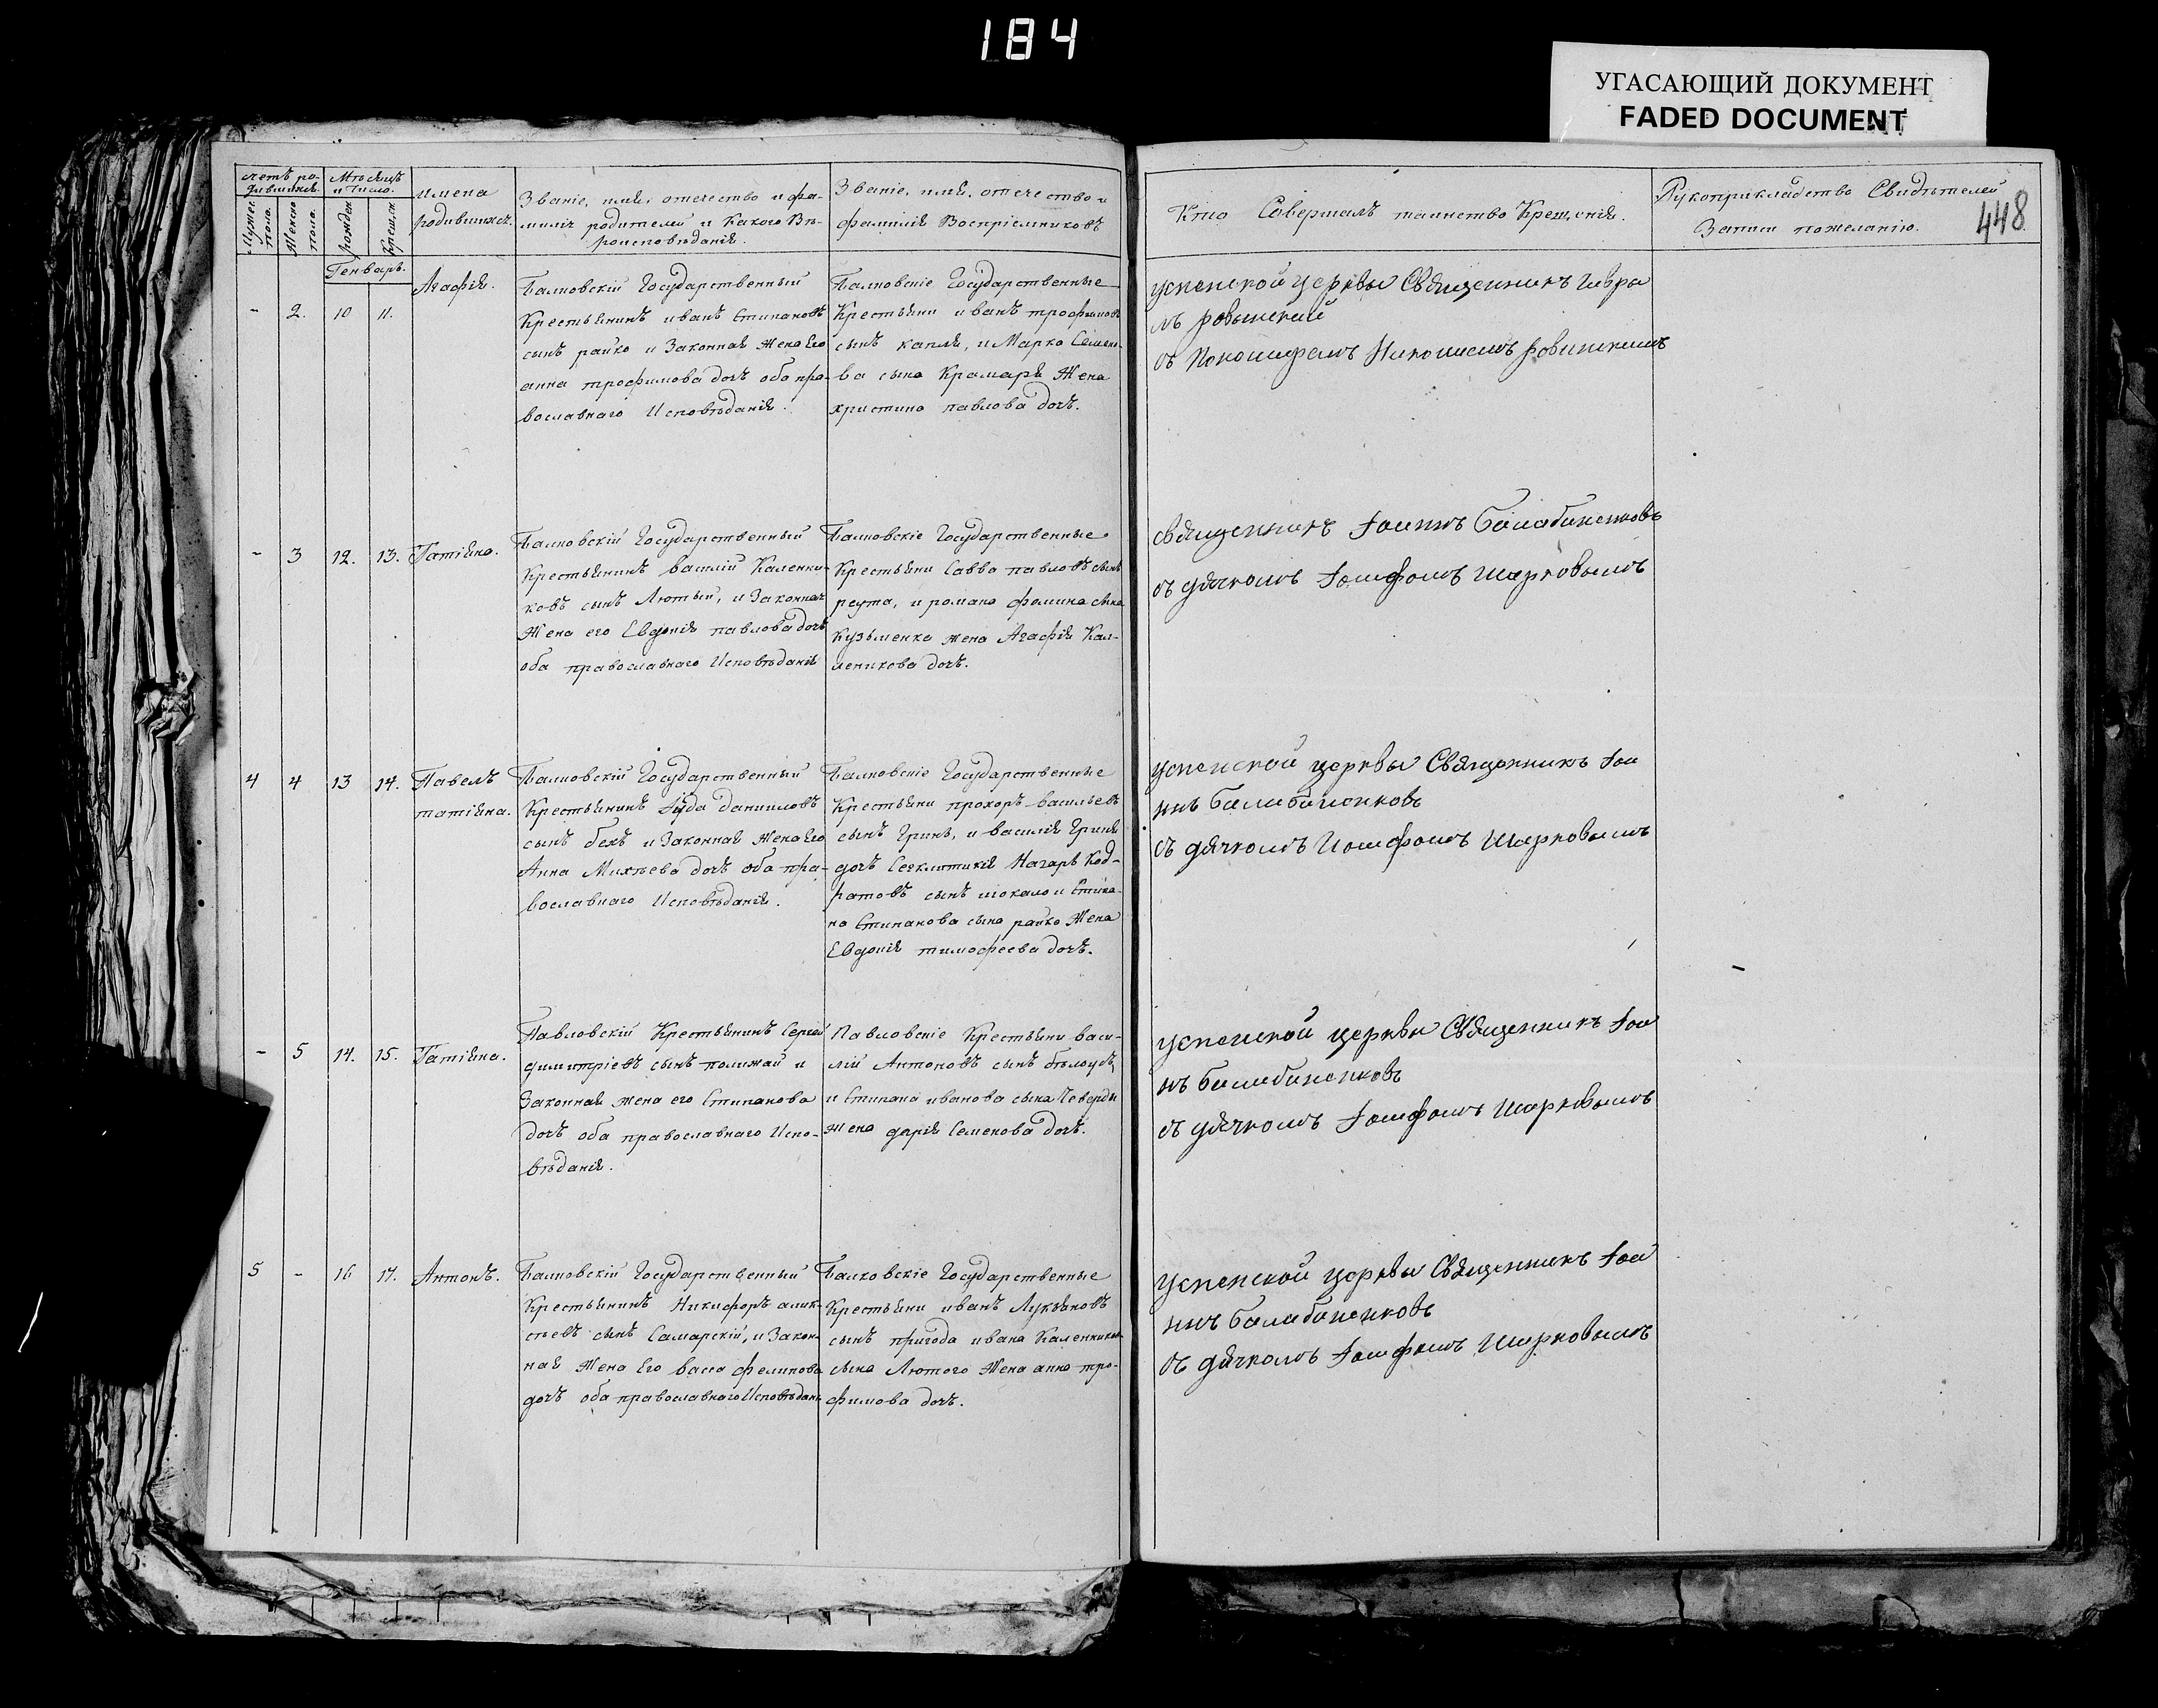 184
УГАСАЮЩИЙ ДОКУМЕНТ
FADED DOCUMENT
448
счетъ родившихся.
Мѣсяцъ и число.
Мужес. пола.
Женска пола.
рожден.
Крещен.
имена
родившихся.
Званіе, имя, отечество и фа-
милія родителей и Какого Вѣ-
роисповѣданія.
Званіе, имя, отечество и
фамилія Воспріемниковъ
Кто Совершалъ таинство Крещенія.
Рукоприкладство Свидѣтелей
Записи пожеланію.
Генварь.
- 2. 10 11. Агафія.
Государственный
Крестьянинъ иванъ Стипановъ
сынъ райко и Законная Жена Его
анна трофимова дочъ оба пра-
вославнаго Исповѣданія.
Государственные
Крестьяни иванъ трофимовъ
сынъ капля, и Марко Семено-
ва сына Крамаря Жена
христина павлова дочъ.
успенской церквы Священникъ
съ Пономаремъ
- 3 12. 13. Татіяна.
Государственный
Крестьянинъ василій Каленни-
ковъ сынъ Лютый, и Законная
Жена его Евдокія павлова дочъ
оба православнаго Исповѣданія
Государственные
Крестьяни Савва павловъ сынъ
реута, и романа фомина сына
Кузьменка жена Агафія Кал-
леникова дочъ.
священникъ Іоаннъ Балабаненковъ
съ дячкомъ Іосифомъ Шарковымъ
4 4 13 14. Павелъ
татіяна.
Государственный
Крестьянинъ Іуда данииловъ
сынъ бехъ и Законная Жена Его
Анна Михѣева дочъ оба пра-
вославнаго Исповѣданія.
Государственные
Крестьяни прохоръ васильевъ
сынъ Гринь, и василія Гриня
дочъ Назаръ Код-
ратовъ сынъ и Стипа-
на Стипанова сына райко Жена
Евдокія тимофеева дочъ.
успенской церквы Священникъ Іоа
ннъ Балабаненковъ
съ дячкомъ Иосифомъ Шарковымъ
- 5 14. 15. Татіяна.
Павловскій Крестьянинъ Сергей
димитріевъ сынъ полижай и
Законная жена его Стипанова
дочъ оба православнаго Испо-
вѣданія.
Павловскіе Крестьяни васи-
лій Антоновъ сынъ бѣлоусъ,
и Стипана иванова сына Чеверди
жена дарія Семенова дочъ.
успенской церквы Священникъ Іоа
нъ Балабаненковъ
съ дячкомъ Іосифомъ Шарковымъ
5 - 16 17. Антонъ.
Государственный
Крестьянинъ Никифоръ алик-
сѣевъ сынъ Самарскій, и Закон-
ная Жена Его васса филипова
дочъ оба православнаго Исповѣдан.
Государственные
Крестьяни иванъ Лукьяновъ
сынъ пригода ивана Каленникова
сына Лютого Жена анна тро-
фимова дочъ.
успенской церквы Священникъ Іоа
ннъ Балабаненковъ
съ дячкомъ Іосифомъ Шарковымъ